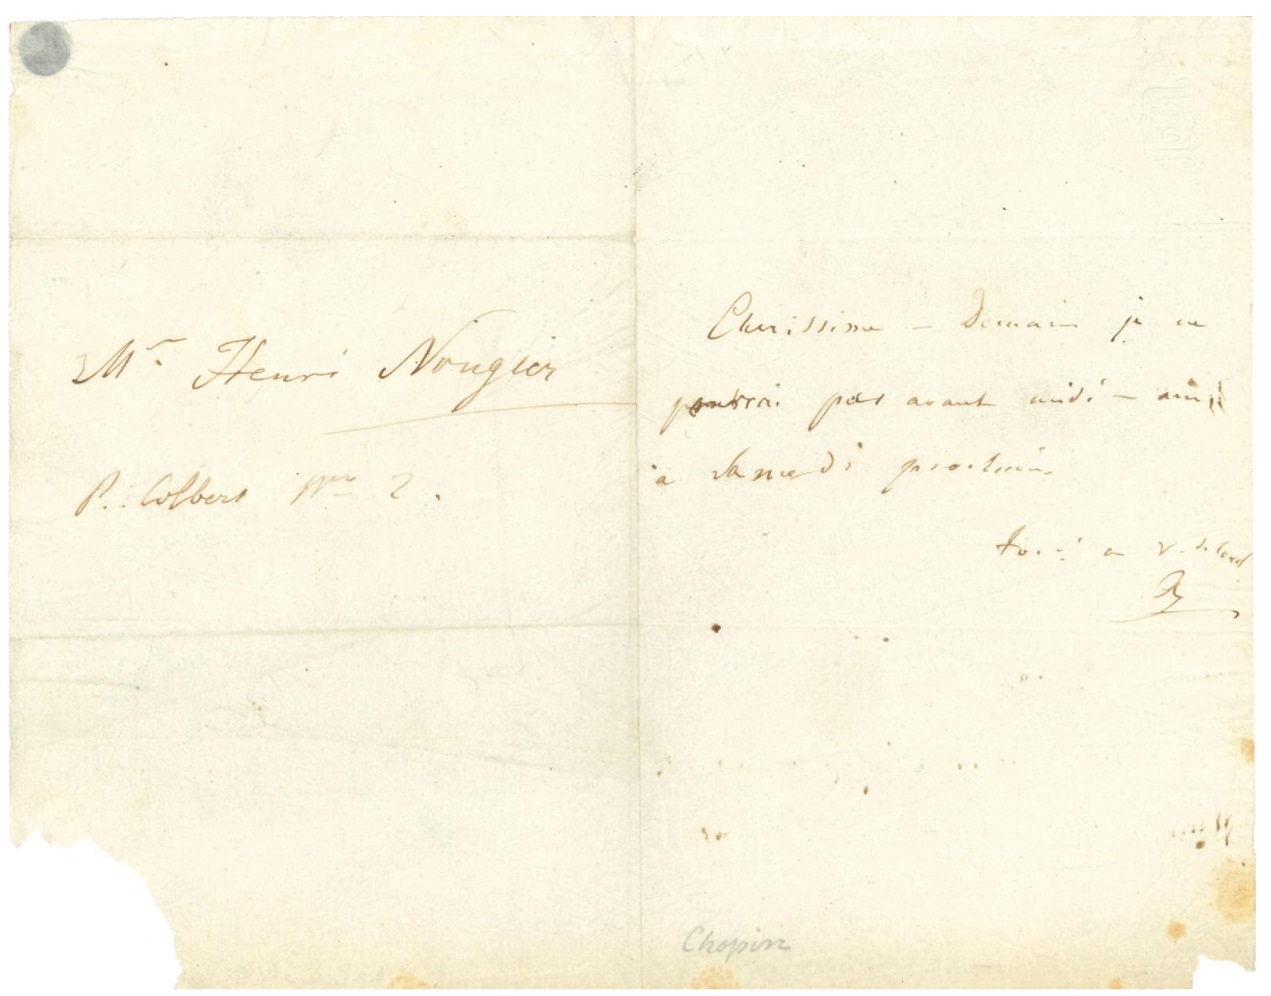 Mr Henri Nougier
P. Colbert No 2.
Cherissime – Demain je ne
pourrai pas avant midi – ainsi
à Samedi prochain
tout à v. de coeur
Ch
Chopin